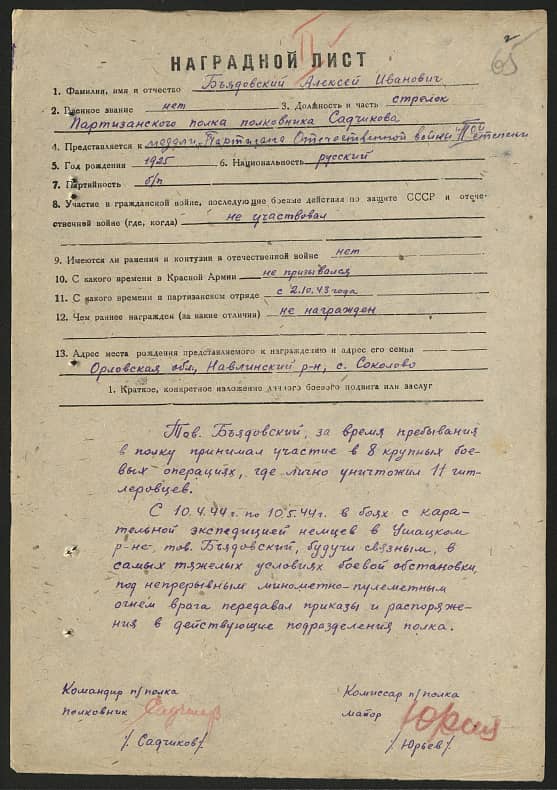 II
2
65
НАГРАДНОЙ ЛИСТ
1. Фамилия, имя и отчество Бъядовский Алексей Иванович
2. Военное звание нет 3. Должность и часть стрелок
Партизанского полка полковника Садчикова
4. Представляется к медали „Партизана Отечественной войны" II ой степени
5. Год рождения 1925 6. Национальность русский
7. Партийность б/п
8. Участие в гражданской войне, последующие боевые действия по защите СССР и отече-
ственной войне (где, когда) не участвовал
9. Имеются ли ранения и контузии в отечественной войне нет
10. С какого времени в Красной Армии не призывался
11. С какого времени в партизанском отряде с 2.10.43 года
12. Чем раннее награжден (за какие отличия) не награжден
13. Адрес места рождения представляемого к награждению и адрес его семьи
Орловская обл, Навлинский р-н, с. Соколово
1. Краткое, конкретное изложение личного боевого подвига или заслуг
Тов. Бъядовский, за время пребывания
в полку принимал участие в 8 крупных бое-
вых операциях, где лично уничтожил 11 гит-
леровцев.
С 10.4.44г. по 10.5.44г. в боях с кара-
тельной экспедицией немцев в Ушацком
р-не тов. Бъядовский, будучи связным, в
самых тяжелых условиях боевой обстановки,
под непрерывным минометно-пулеметным
огнем врага передавал приказы и распоряже-
ния в действующие подразделения полка.
Командир п/полка
полковник Садчиков
/. Садчиков/
Комиссар п/полка
майор Юрьев
/. Юрьев/